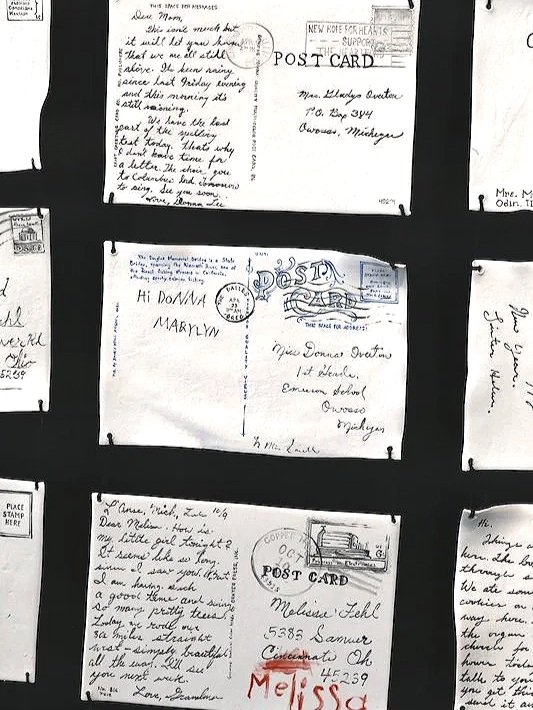 THIS SPACE FOR MESSAGES
Dear Mom,
This isn't much but
it will let you know
that we are all still
above. It's been raining
since last Friday evening
and this morning it's
still raining.
We have the last
part of the spelling
test today. That's why
I don't have time for
a letter. The choir goes
to Columbus Ind. tomorrow
to sing. See you soon.
Love, Donna Lee
NEW HOPE FOR HEARTS
SUPPORT
POST CARD
Mrs. Gladys Overton
P.O. Box 384
Owosso, Michigan
Mrs. M
Odin, I
5239
POST
CARD
THIS SPACE FOR ADDRESS
Hi DONNA
MARYLYN
THE DALLES
APR
OREG
Miss Donna Overton
1st Grade
Emerson School
Owosso
Michigan
New Year.
PLACE
STAMP
HERE
L'Anse, Mich,
Dear Melissa. How is
my little girl tonight?
It seems like so long
since I saw you.
I am having such
a good time and seeing
so many pretty trees.
Today we rode over
32 miles straight
west - simply beautiful
all the way. I'll see
you next week.
Love, Grandma
OCT
POST CARD
Melissa Fehl
5383 Samver
Cincinnati Oh
45239
Melissa
Hi.
Things a
here. The
through
We ate som
cookies
way here.
the organ
church fo
hours
talk to yo
you get this
send it